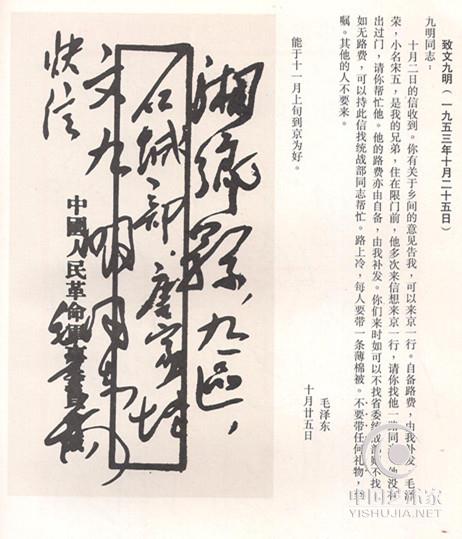 致文九明(一九五三年十月二十五日)
九明同志:
十月二日的信收到。你有关于乡间的意见告我,可以来京一行。自备路费,由我补发。毛泽
荣,小名宋五,是我的兄弟,住在限门前,他多次来信想来京一行,请你找他一路同来。他没有
出过门,请你帮忙他。他的路费亦由自备,由我补发。你们来时如可以不找省委统战部则不找,
如无路费,可以持此信找统战部同志帮忙。路上冷,每人要带一条薄棉被。不要带任何礼物,至
嘱。其他的人不要来。
能于十一月上旬到京为好。
毛泽东
十月廿五日
湘鄉縣,九區,
石城 唐家
文九明同志
快信
中國人民革命軍事委員會
中国艺术家
YISHUJIA.NET